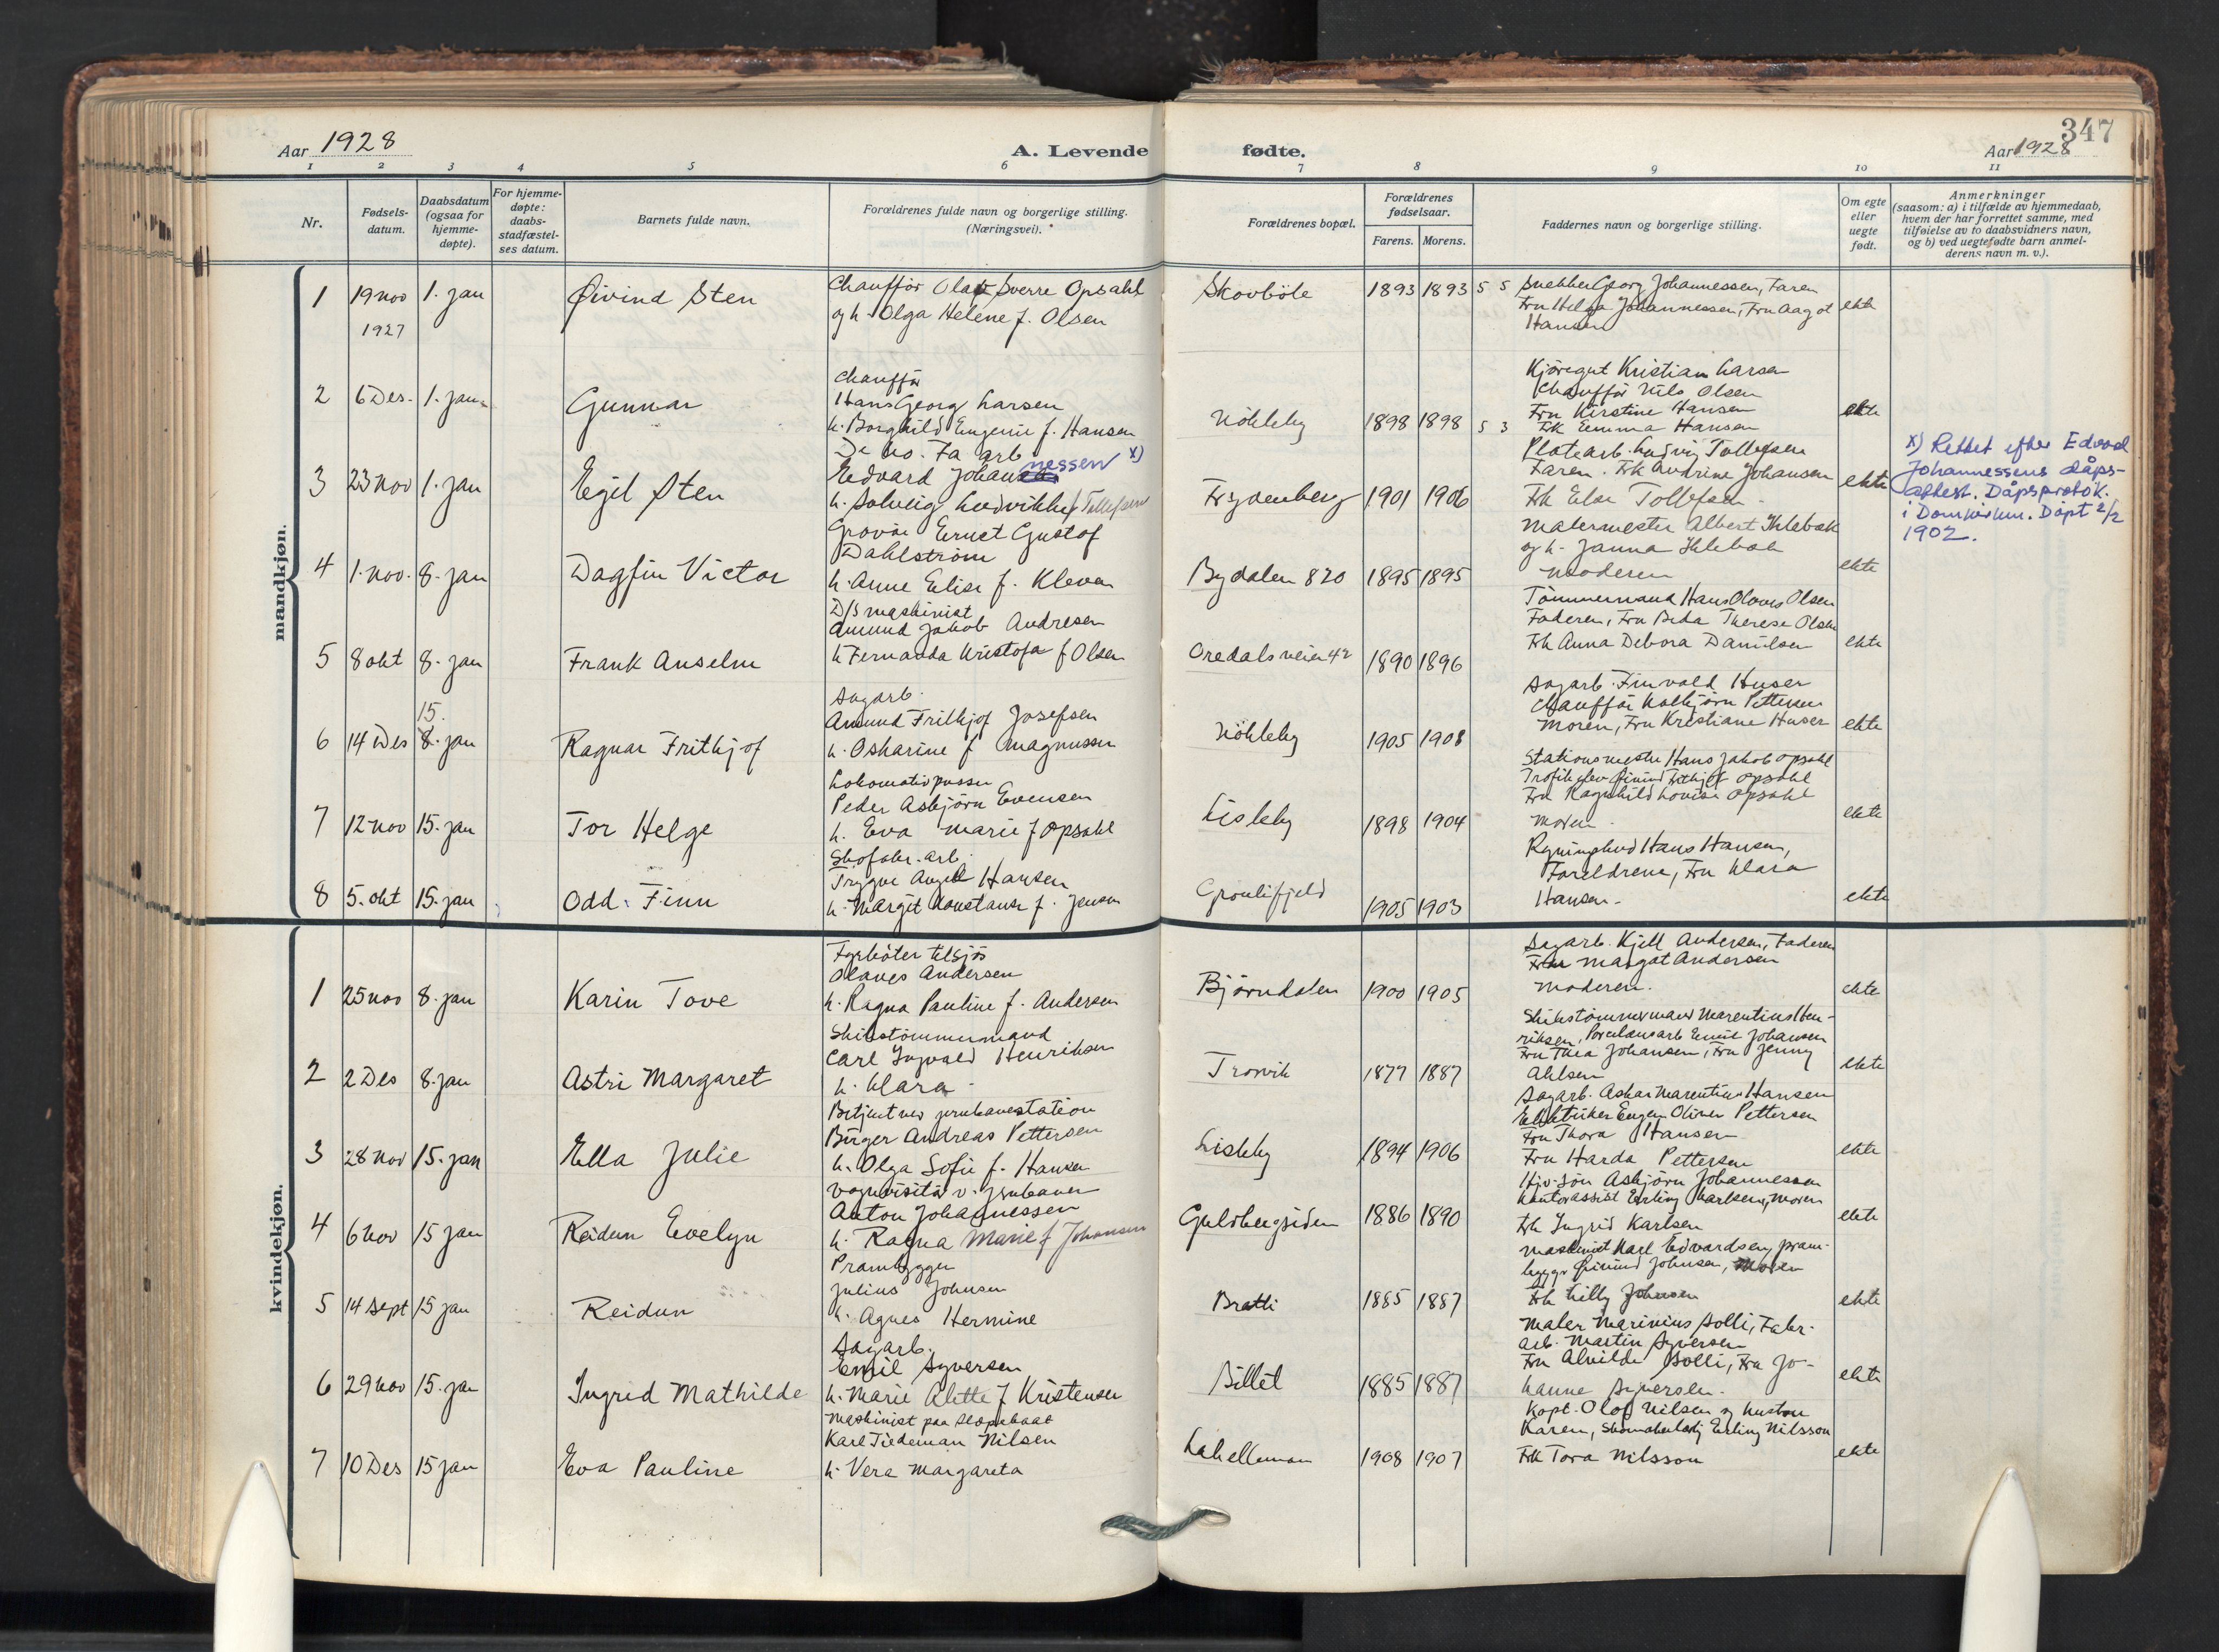 347
Aar 1928
A. Levende
fødte.
Aar 1928
1 2 3 4 5 6 7 8 9 10 11
Nr.
Fødsels-
datum.
Daabsdatum
(ogsaa for
hjemme-
døpte).
For hjemme-
døpte:
daabs-
stadfæstel-
ses datum.
Barnets fulde navn.
Forældrenes fulde navn og borgerlige stilling.
(Næringsvei).
Forældrenes bopæl.
Forældrenes
fødselsaar.
Farens. Morens.
Faddernes navn og borgerlige stilling.
Om egte
eller
uegte
født.
Anmerkninger
(saasom: a) i tilfælde av hjemmedaab,
hvem der har forrettet samme, med
tilføielse av to daabsvidners navn,
og b) ved uegtefødte barn anmel-
derens navn m. v.).
mandkjøn.
1 19 nov 1. jan
1927
Øivind Sten
Chauffør Olaf Sverre Opsahl
og h. Olga Helene f. Olsen
Skovbøle
1893 1893 5 5
Snekker Georg Johannessen, Faren
Fru Helga Johannessen, Fru Aagot
Hansen
ekte
2 6 Des. 1. jan.
Gunnar
Chauffør
Hans Georg Larsen
h. Borghild Eugenie f. Hansen
Nökleby
1898 1898 5 3
Kjøregut Kristian Larsen
Chauffør Nils Olsen
Fru Kirstine Hansen
Frk Emma Hansen
ekte
3 23 nov 1. jan
Egil Sten
De No. Fa arb.
Edvard Johannessen x)
h. Solveig Ludvikke f Tollefsen
Frydenberg
1901 1906
Platearb. Ludvig Tollefsen
Faren. Frk Andrine Johansen
Frk Else Tollefsen
ekte
x) Rettet efter Edvard
Johannessens dåps-
attest. Dåpsprotok.
i Domkirken. Døpt 2/2
1902.
4 1. nov. 8. jan
Dagfin Victor
Gravør Ernst Gustof
Dahlström
h. Anne Elise f. Kleven
Bydalen 820
1895 1895
Malermester Albert Iklebæk
og h. Janna Iklebæk
Moderen
ekte
5 8 okt 8. jan
Frank Anselm
D/S maskinist
Amund Jakob Andresen
h Fernanda Kristofa f Olsen
Oredalsveien 42
1890 1896
Tømmermand Hans Olaves Olsen
Faderen, Fru Beda Therese Olsen
Frk Anna Debora Danielsen
ekte
6 14 Des 8. jan
15.
Ragnar Frithjof
Sagarb.
Amund Frithjof Josefsen
h. Oskarine f Magnussen
Nökleby
1905 1908
Sagarb. Finvald Huser
Chauffør Kolbjörn Pettersen
Moren, Fru Kristiane Huser
ekte
7 12 nov 15. jan
Tor Helge
Lokomotivpusser
Peder Asbjørn Evensen
h. Eva Marie f Opsahl
Lisleby
1898 1904
Stationsmester Hans Jakob Opsahl
Trafikelev Øivind Frithjof Opsahl
Fru Ragnhild Lovise Opsahl
Moren.
ekte
8 5. okt 15. jan
Odd Finn
Skofabr. arb.
Trygve Angel Hansen
h. Margit Konstanse f. Jensen
Groulifjeld
1905 1903
Hans Hansen,
Foreldrene, Fru Klara
Hansen.
ekte
kvindekjøn.
1 25 nov 8. jan
Karin Tove
Fyrbøter tilsjøs
Olaves Andersen
h. Ragna Pauline f. Andersen
Bjørndalen
1900 1905
Sagarb. Kjell Andersen, Faderen
Frk Margot Andersen
Moderen.
ekte
2 2 Des 8. jan
Astri Margaret
Skibstømmermand
Carl Ingvald Henriksen
h. Klara
Trosvik
1877 1887
Skibstømmermand Marentius Hen-
riksen, Porcelænsarb Emil Johansen
Fru Thea Johansen, Fru Jenny
Ahlsen
ekte
3 28 nov 15. jan
Ella Julie
Betjent ved jernbanestation
Birger Andreas Pettersen
h. Olga Sofie f. Hansen
Lisleby
1894 1906
Sagarb. Oskar Marentius Hansen
Elektriker Eugen Oliver Pettersen
Fru Thora Hansen
Fru Harda Pettersen
ekte
4 6 nov 15 jan
Reidun Evelyn
Vognvisitør v. jernbanen
Anton Johannessen
h. Ragna Marie f Johansen
Guldbergsiden
1886 1890
Hjv. Søn Asbjørn Johannessen
Kontorassist Erling Karlsen, Moren
Frk Ingrid Karlsen
ekte
5 14 Sept 15 jan
Reidun
Prambygger
Julius Johnsen
h. Agnes Hermine
Bratli
1885 1887
Maskinist Karl Edvardsen, pram-
bygger Øivind Johnsen, Moren
Frk Lilly Johnsen
ekte
6 29 nov 15. jan
Ingrid Mathilde
Sagarb.
Emil Syversen
h. Marie Alette f Kristensen
Billet
1885 1887
Maler Marinius Solli, Fabr.
arb. Martin Syversen
Fru Alvilde Solli, Fru Jo-
hanne Syversen.
ekte
7 10 Des 15 jan
Eva Pauline
Maskinist paa slæpebaat
Karl Tiedeman Nilsen
h. Vera Margareta
Lahelleman
1908 1907
Kapt. Olof Nilsen og hustru
Karen, Skomakerlærl Erling Nilsson
Frk Tora Nilsson
ekte